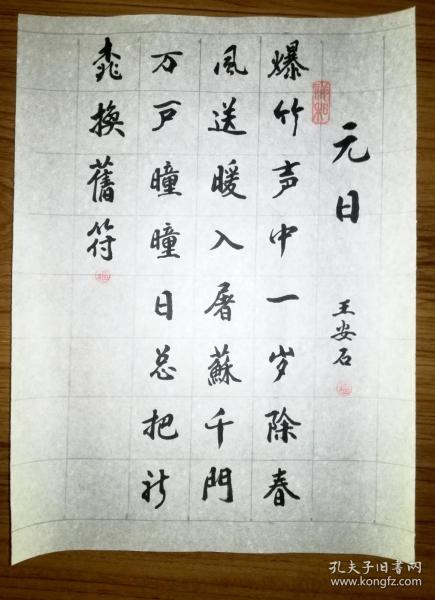 元日
王安石
爆竹声中一岁除春
風送暖入屠蘇千門
万戸曈曈日总把新
桃換舊符
孔夫子旧书网
www.kongfz.com